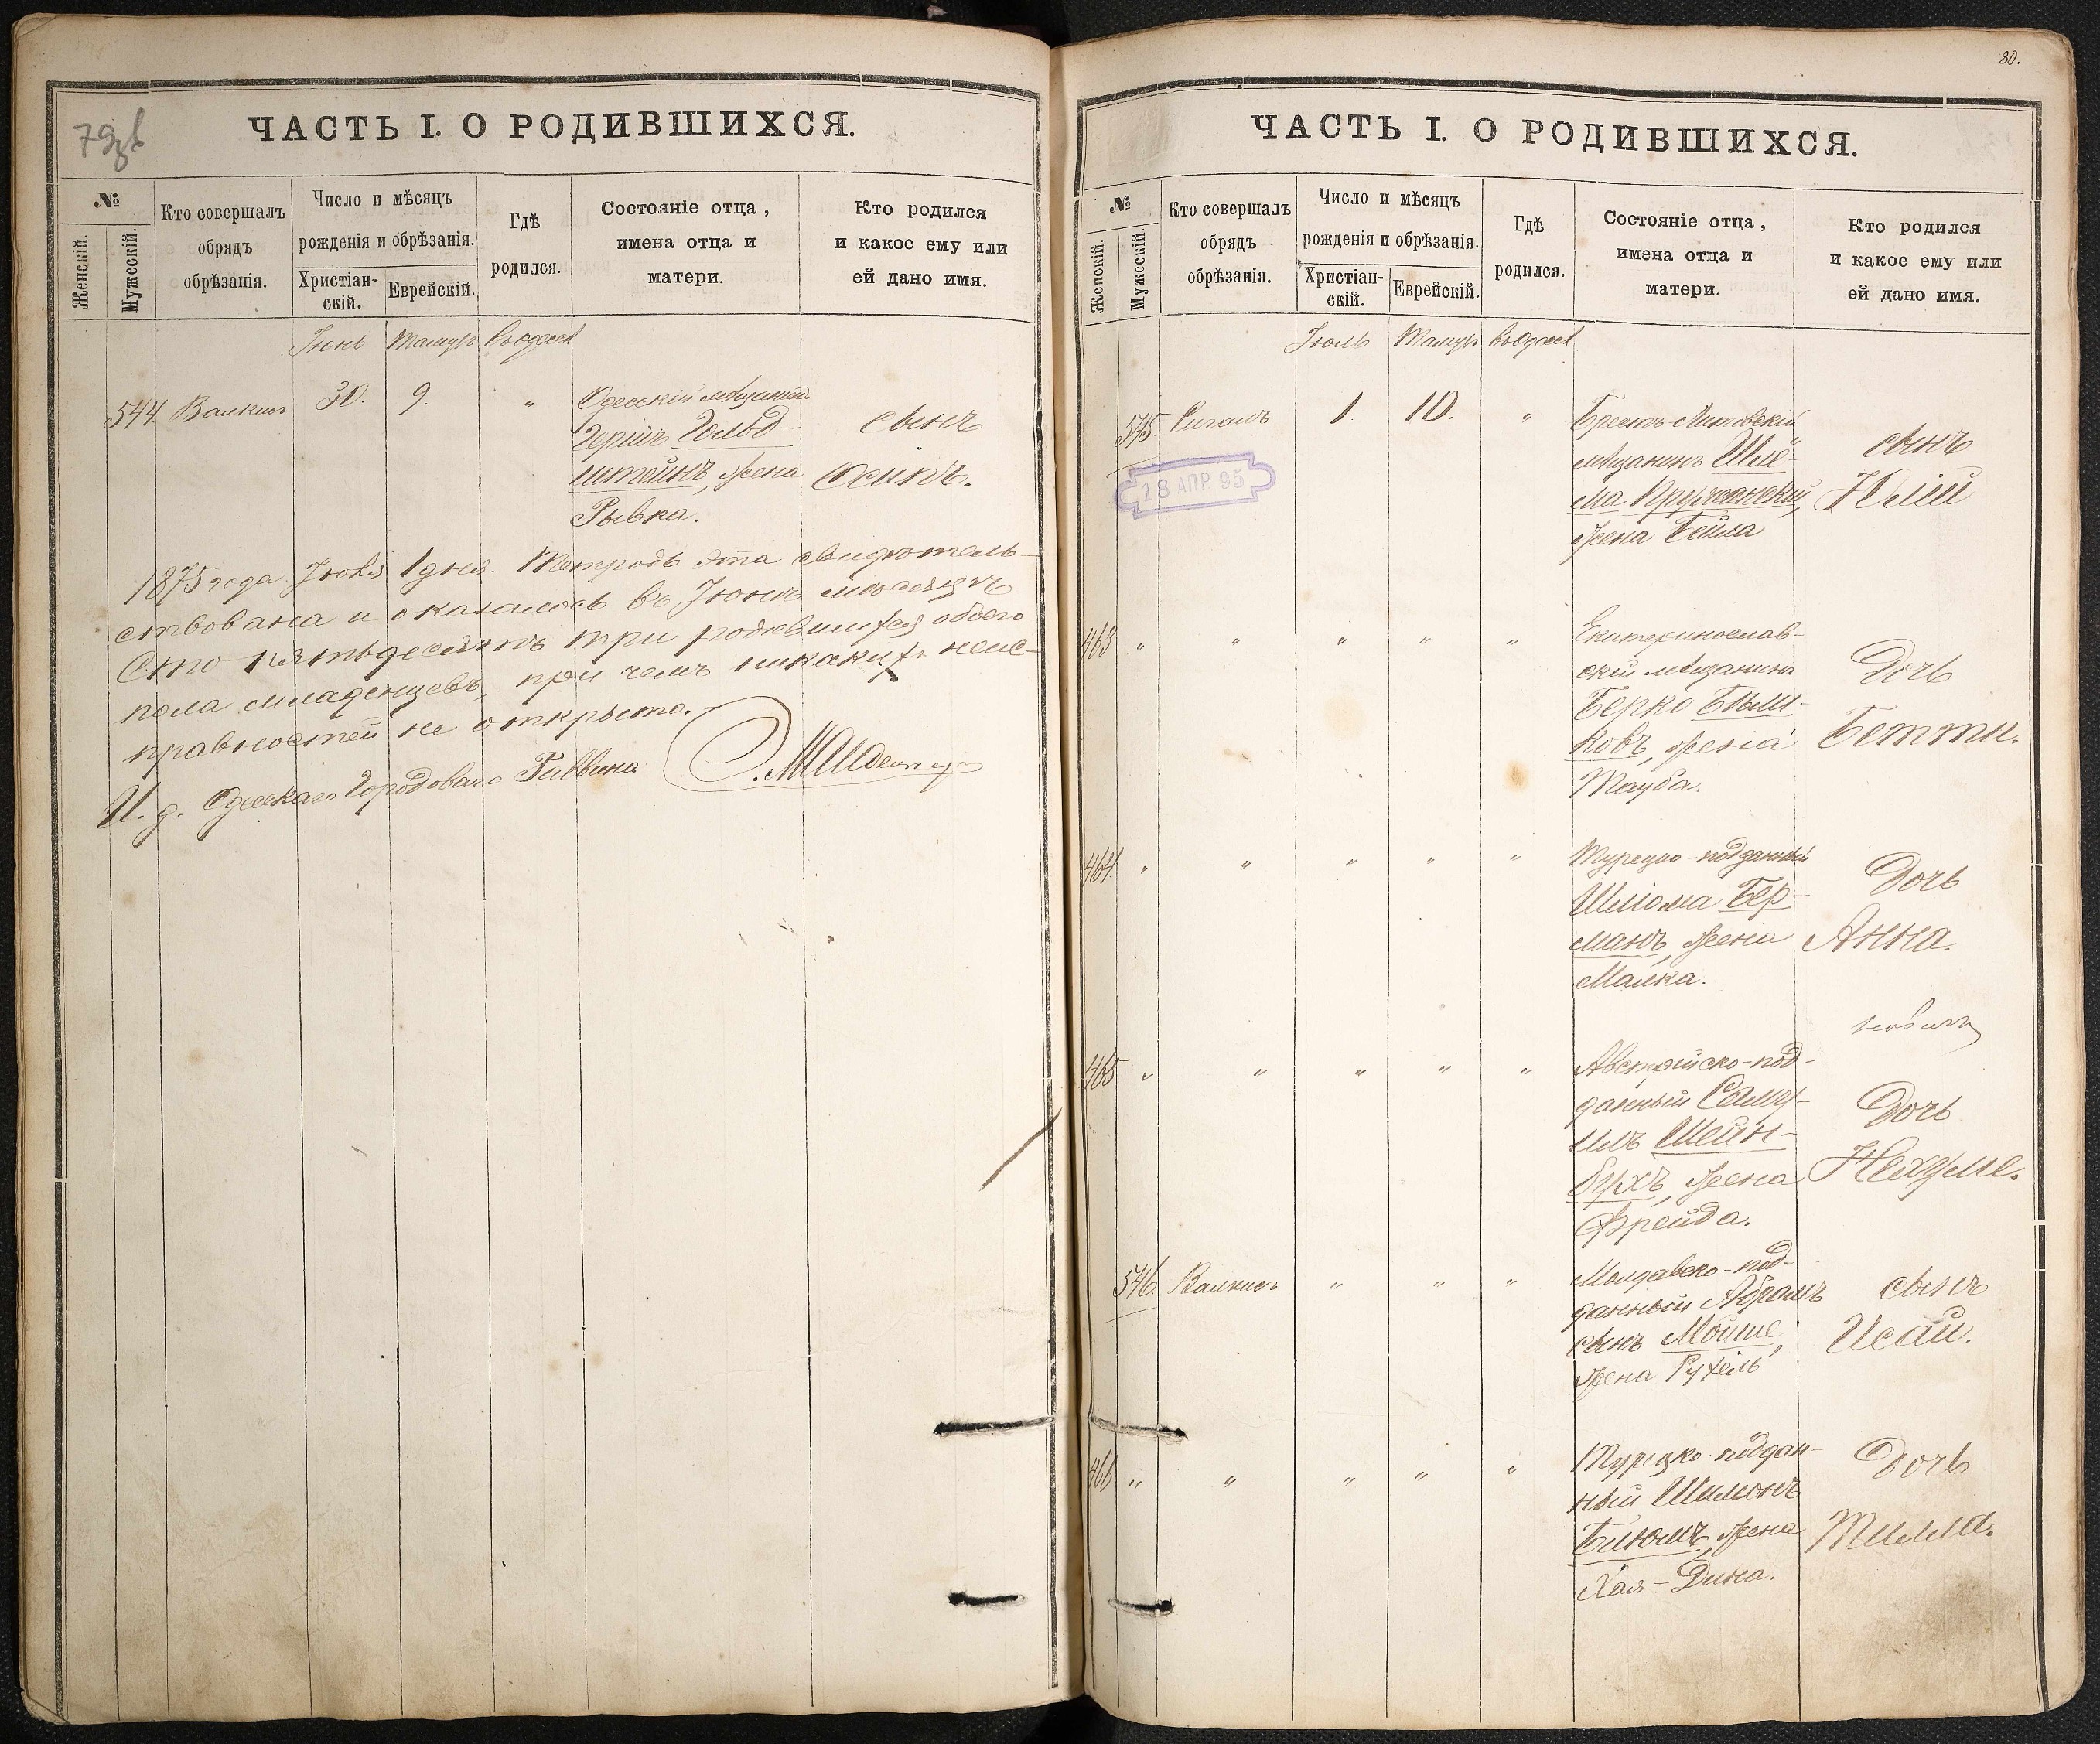 79об
ЧАСТЬ I. О РОДИВШИХСЯ.
№
Женскій.
Мужескій.
Кто совершалъ
обрядъ
обрѣзанія.
Число и мѣсяцъ
рожденія и обрѣзанія.
Христіан-
скій.
Еврейскій.
Гдѣ
родился.
Состояніе отца,
имена отца и
матери.
Кто родился
и какое ему или
ей дано имя.
Іюнь Тамузъ въ Одессѣ
544 Валкисъ 30. 9. " Одесскій мѣщанинъ
Гершъ Гольд-
штейнъ, жена
Рывка.
сынъ
Осипъ.
1875 года Іюля 1 дня. Тетрадь эта свидѣтель-
ствована и оказалось въ Іюнѣ мѣсяцѣ
Сто пятьдесятъ три родившихся обоего
пола младенцевъ, при чемъ никакихъ неис-
правностей не открыто.
И. д. Одесскаго Городоваго Раввина
80.
ЧАСТЬ I. О РОДИВШИХСЯ.
№
Женскій.
Мужескій.
Кто совершалъ
обрядъ
обрѣзанія.
Число и мѣсяцъ
рожденія и обрѣзанія.
Христіан-
скій.
Еврейскій.
Гдѣ
родился.
Состояніе отца,
имена отца и
матери.
Кто родился
и какое ему или
ей дано имя.
Іюль Тамузъ въ Одессѣ
545. Сигалъ 1. 10. " Брестъ-Литовскій
мѣщанинъ Шлё-
ма Пружанскій,
жена Бейла
сынъ
Юлій
18 АПР. 95
463 " " " " " Екатеринослав-
скій мѣщанинъ
Берко Быш-
ковъ, жена
Тауба.
Дочь
Бетти.
464 " " " " " Турецко-подданный
Шліома Бер-
манъ, жена
Малка.
Дочь
Анна.
465 " " " " " Австрійско-под-
данный Саму-
илъ Шейн-
бухъ, жена
Фрейда.
Дочь
Нехуме.
546. Валкисъ " " " Молдавско-под-
данный Абрамъ
сынъ Мойше,
жена Рухель
сынъ
Исай.
466 " " " " " Турецко-поддан-
ный Шимонъ
Блюмъ, жена
Хая-Дина.
Дочь
Тилла.